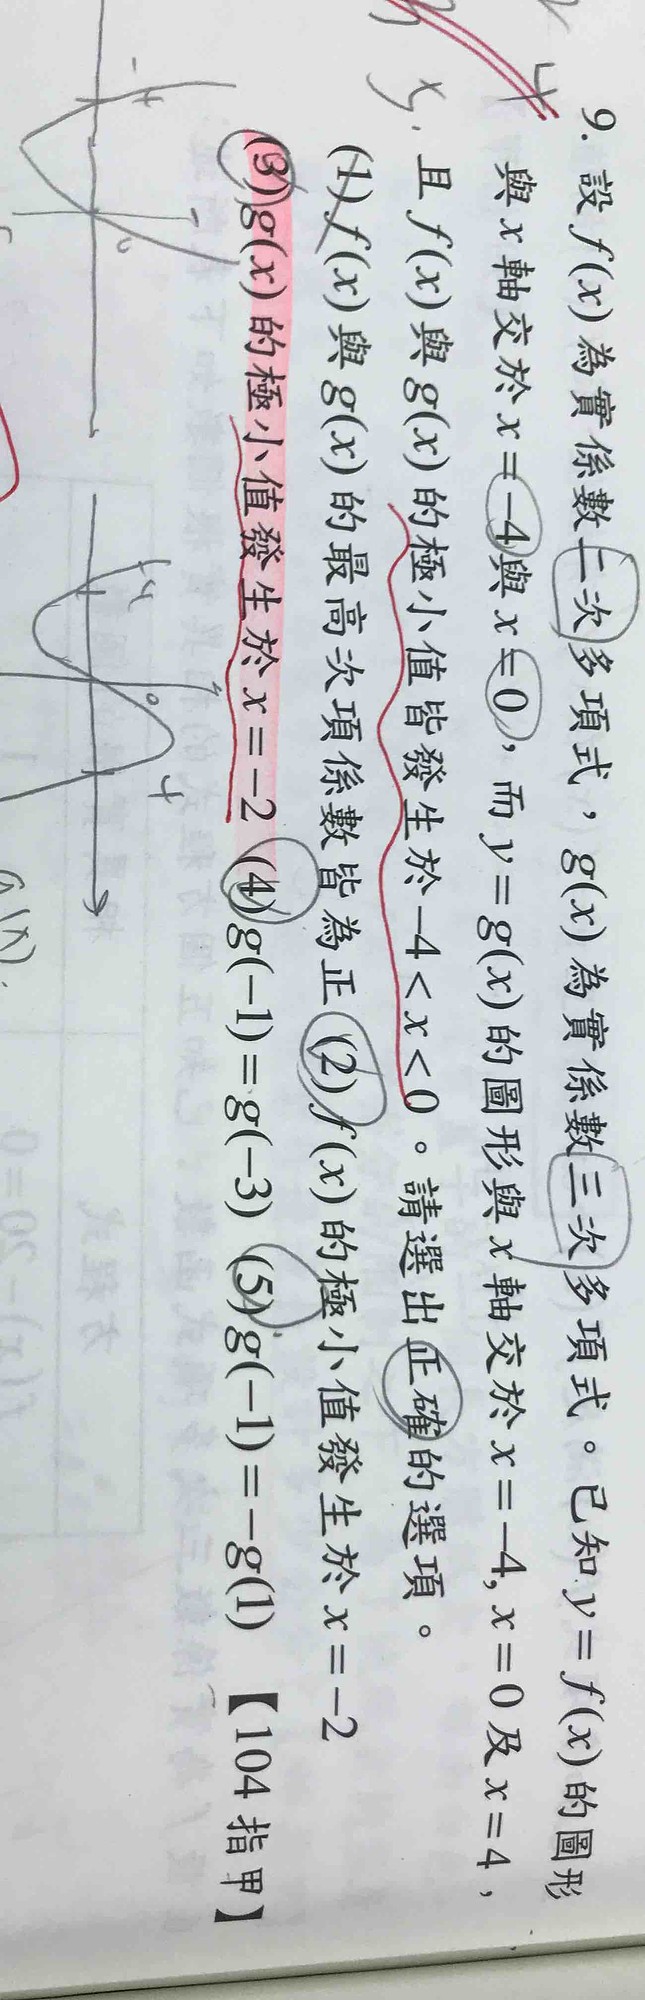 9. 設 f(x) 為實係數二次多項式，g(x) 為實係數三次多項式。已知 y = f(x) 的圖形
與 x 軸交於 x = -4 與 x = 0，而 y = g(x) 的圖形與 x 軸交於 x = -4, x = 0 及 x = 4，
且 f(x) 與 g(x) 的極小值皆發生於 -4 < x < 0。請選出正確的選項。
(1) f(x) 與 g(x) 的最高次項係數皆為正 (2) f(x) 的極小值發生於 x = -2
(3) g(x) 的極小值發生於 x = -2 (4) g(-1) = g(-3) (5) g(-1) = -g(1) 【104 指甲】
-4 0
-4 0 4